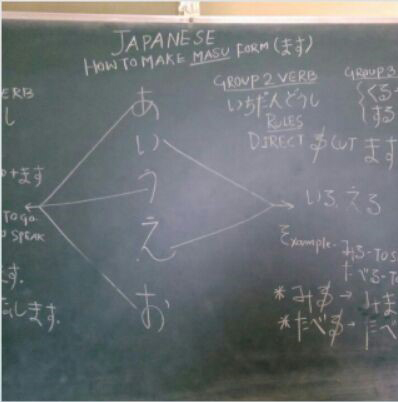 JAPANESE
HOW TO MAKE MASU FORM (ます)
ERB
し
+ます
TO GO
SPEAK
す.
します.
あ
い
う
え
お
GROUP 2 VERB
いちだんどうし
RULES
DIRECT る CUT ます
いる, える
Example- みる-TO S
たべる-TO
*みる→みま
*たべる→たべ
GROUP 3
くる
する